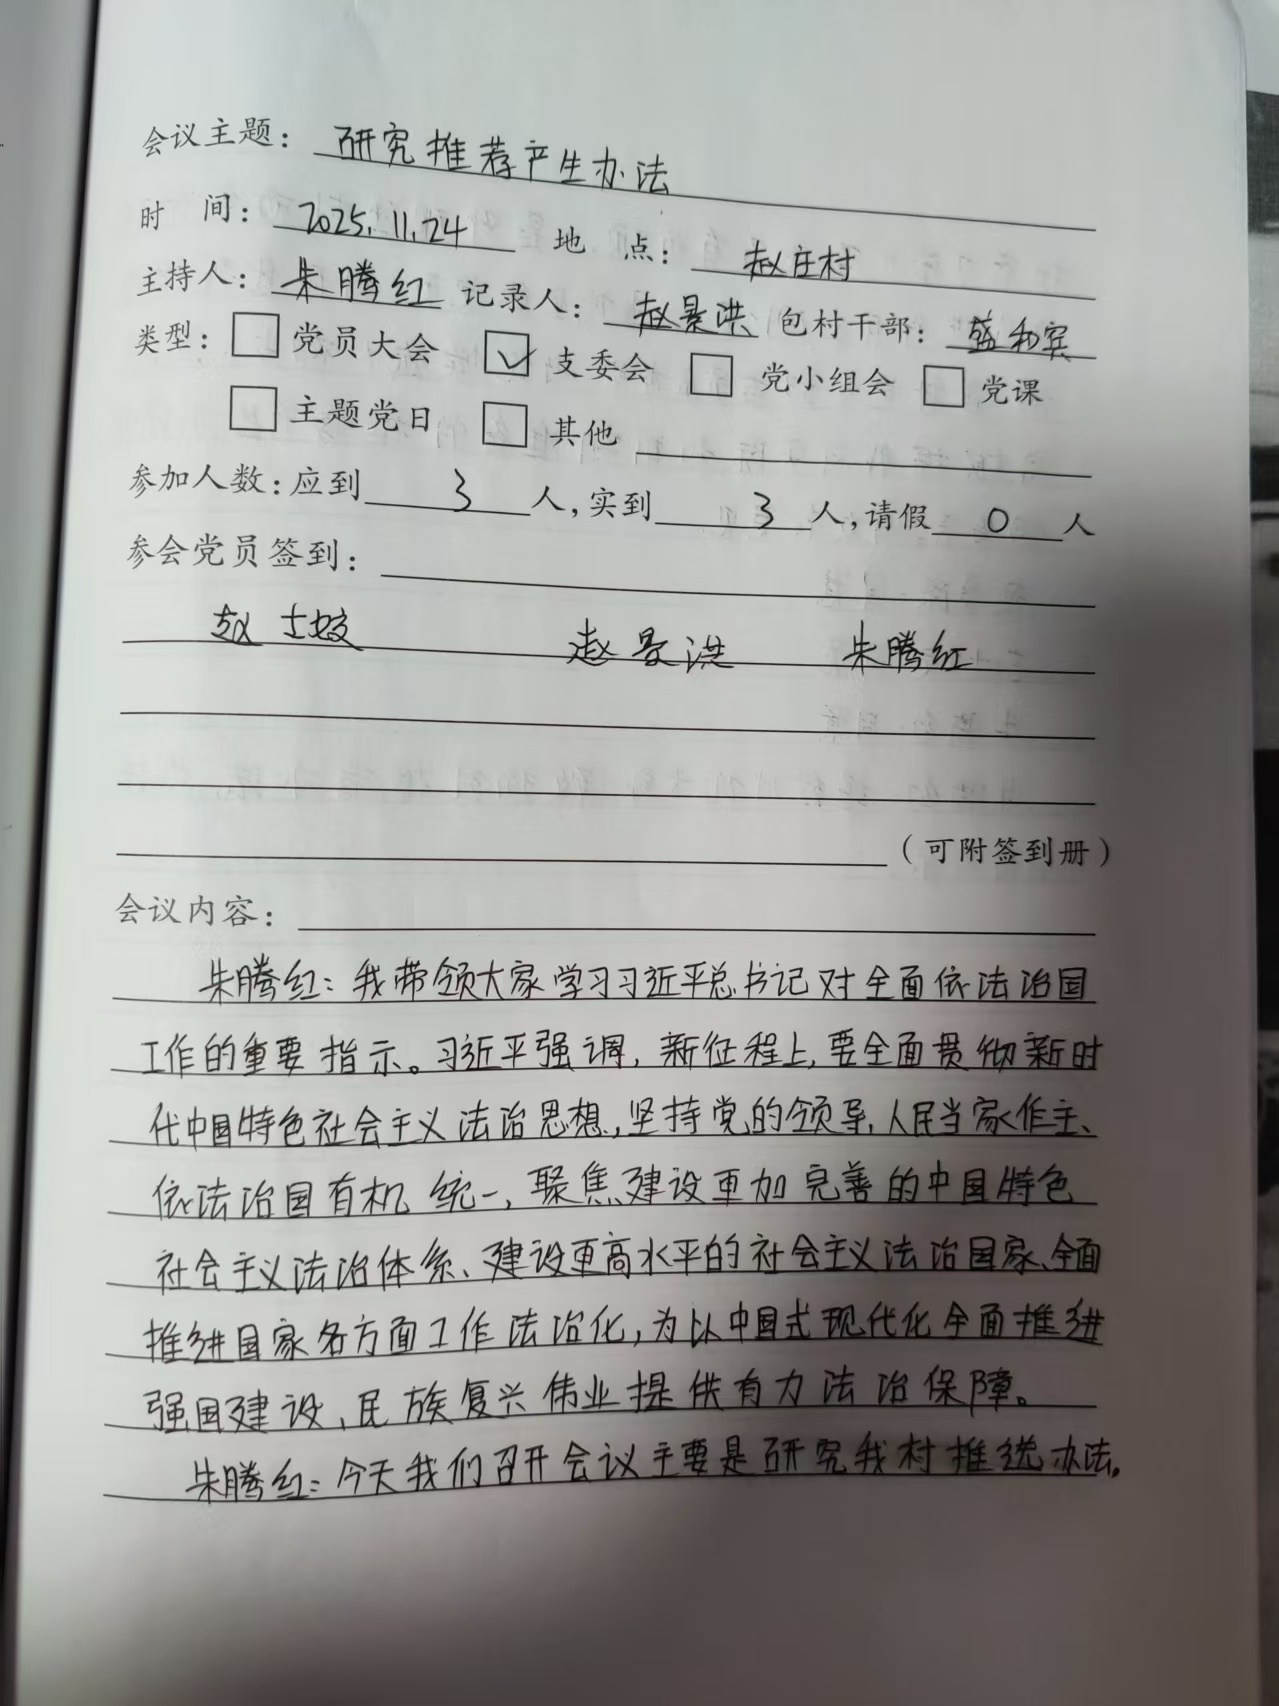 会议主题：研究推荐产生办法
时 间：2025.11.24 地 点：赵庄村
主持人：朱腾红 记录人：赵景洪 包村干部：盛和宾
类型：□党员大会 ☑支委会 □党小组会 □党课
□主题党日 □其他
参加人数：应到3人，实到3人，请假0人
参会党员签到：
赵士 赵景洪 朱腾红
（可附签到册）
会议内容：
朱腾红：我带领大家学习习近平总书记对全面依法治国
工作的重要指示。习近平强调，新征程上，要全面贯彻新时
代中国特色社会主义法治思想，坚持党的领导、人民当家作主、
依法治国有机统一，聚焦建设更加完善的中国特色
社会主义法治体系、建设更高水平的社会主义法治国家、全面
推进国家各方面工作法治化，为以中国式现代化全面推进
强国建设、民族复兴伟业提供有力法治保障。
朱腾红：今天我们召开会议主要是研究我村推选办法。